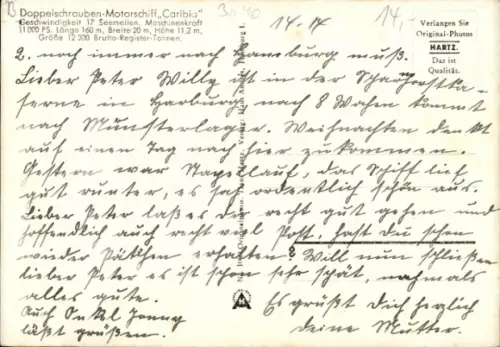 Doppelschrauben-Motorschiff „Caribia"
Geschwindigkeit 17 Seemeilen. Maschinenkraft
11 000 PS. Länge 160 m, Breite 20 m, Höhe 11,2 m,
Größe 12 300 Brutto-Register-Tonnen.
14.-
Verlangen Sie
Original-Photos
HARTZ.
Das ist
Qualität.
2. noch immer nach Hamburg muß.
Lieber Peter Willy ist in der
serne in Harburg, nach 8 Wochen kommt
nach Munsterlager. Weihnachten denkt
auf einen Tag nach hier zu kommen.
Gestern war Stapellauf, das Schiff lief
gut runter, es sah ordentlich schön aus.
Lieber Peter laß es dir recht gut gehen und
hoffendlich auch recht viel Post, hast du schon
wieder Päckchen erhalten? Will nun schließen
lieber Peter es ist schon sehr spät, nochmals
alles gute.
Es grüßt Dich herzlich
deine Mutter.
Auch Onkel
läßt grüßen.